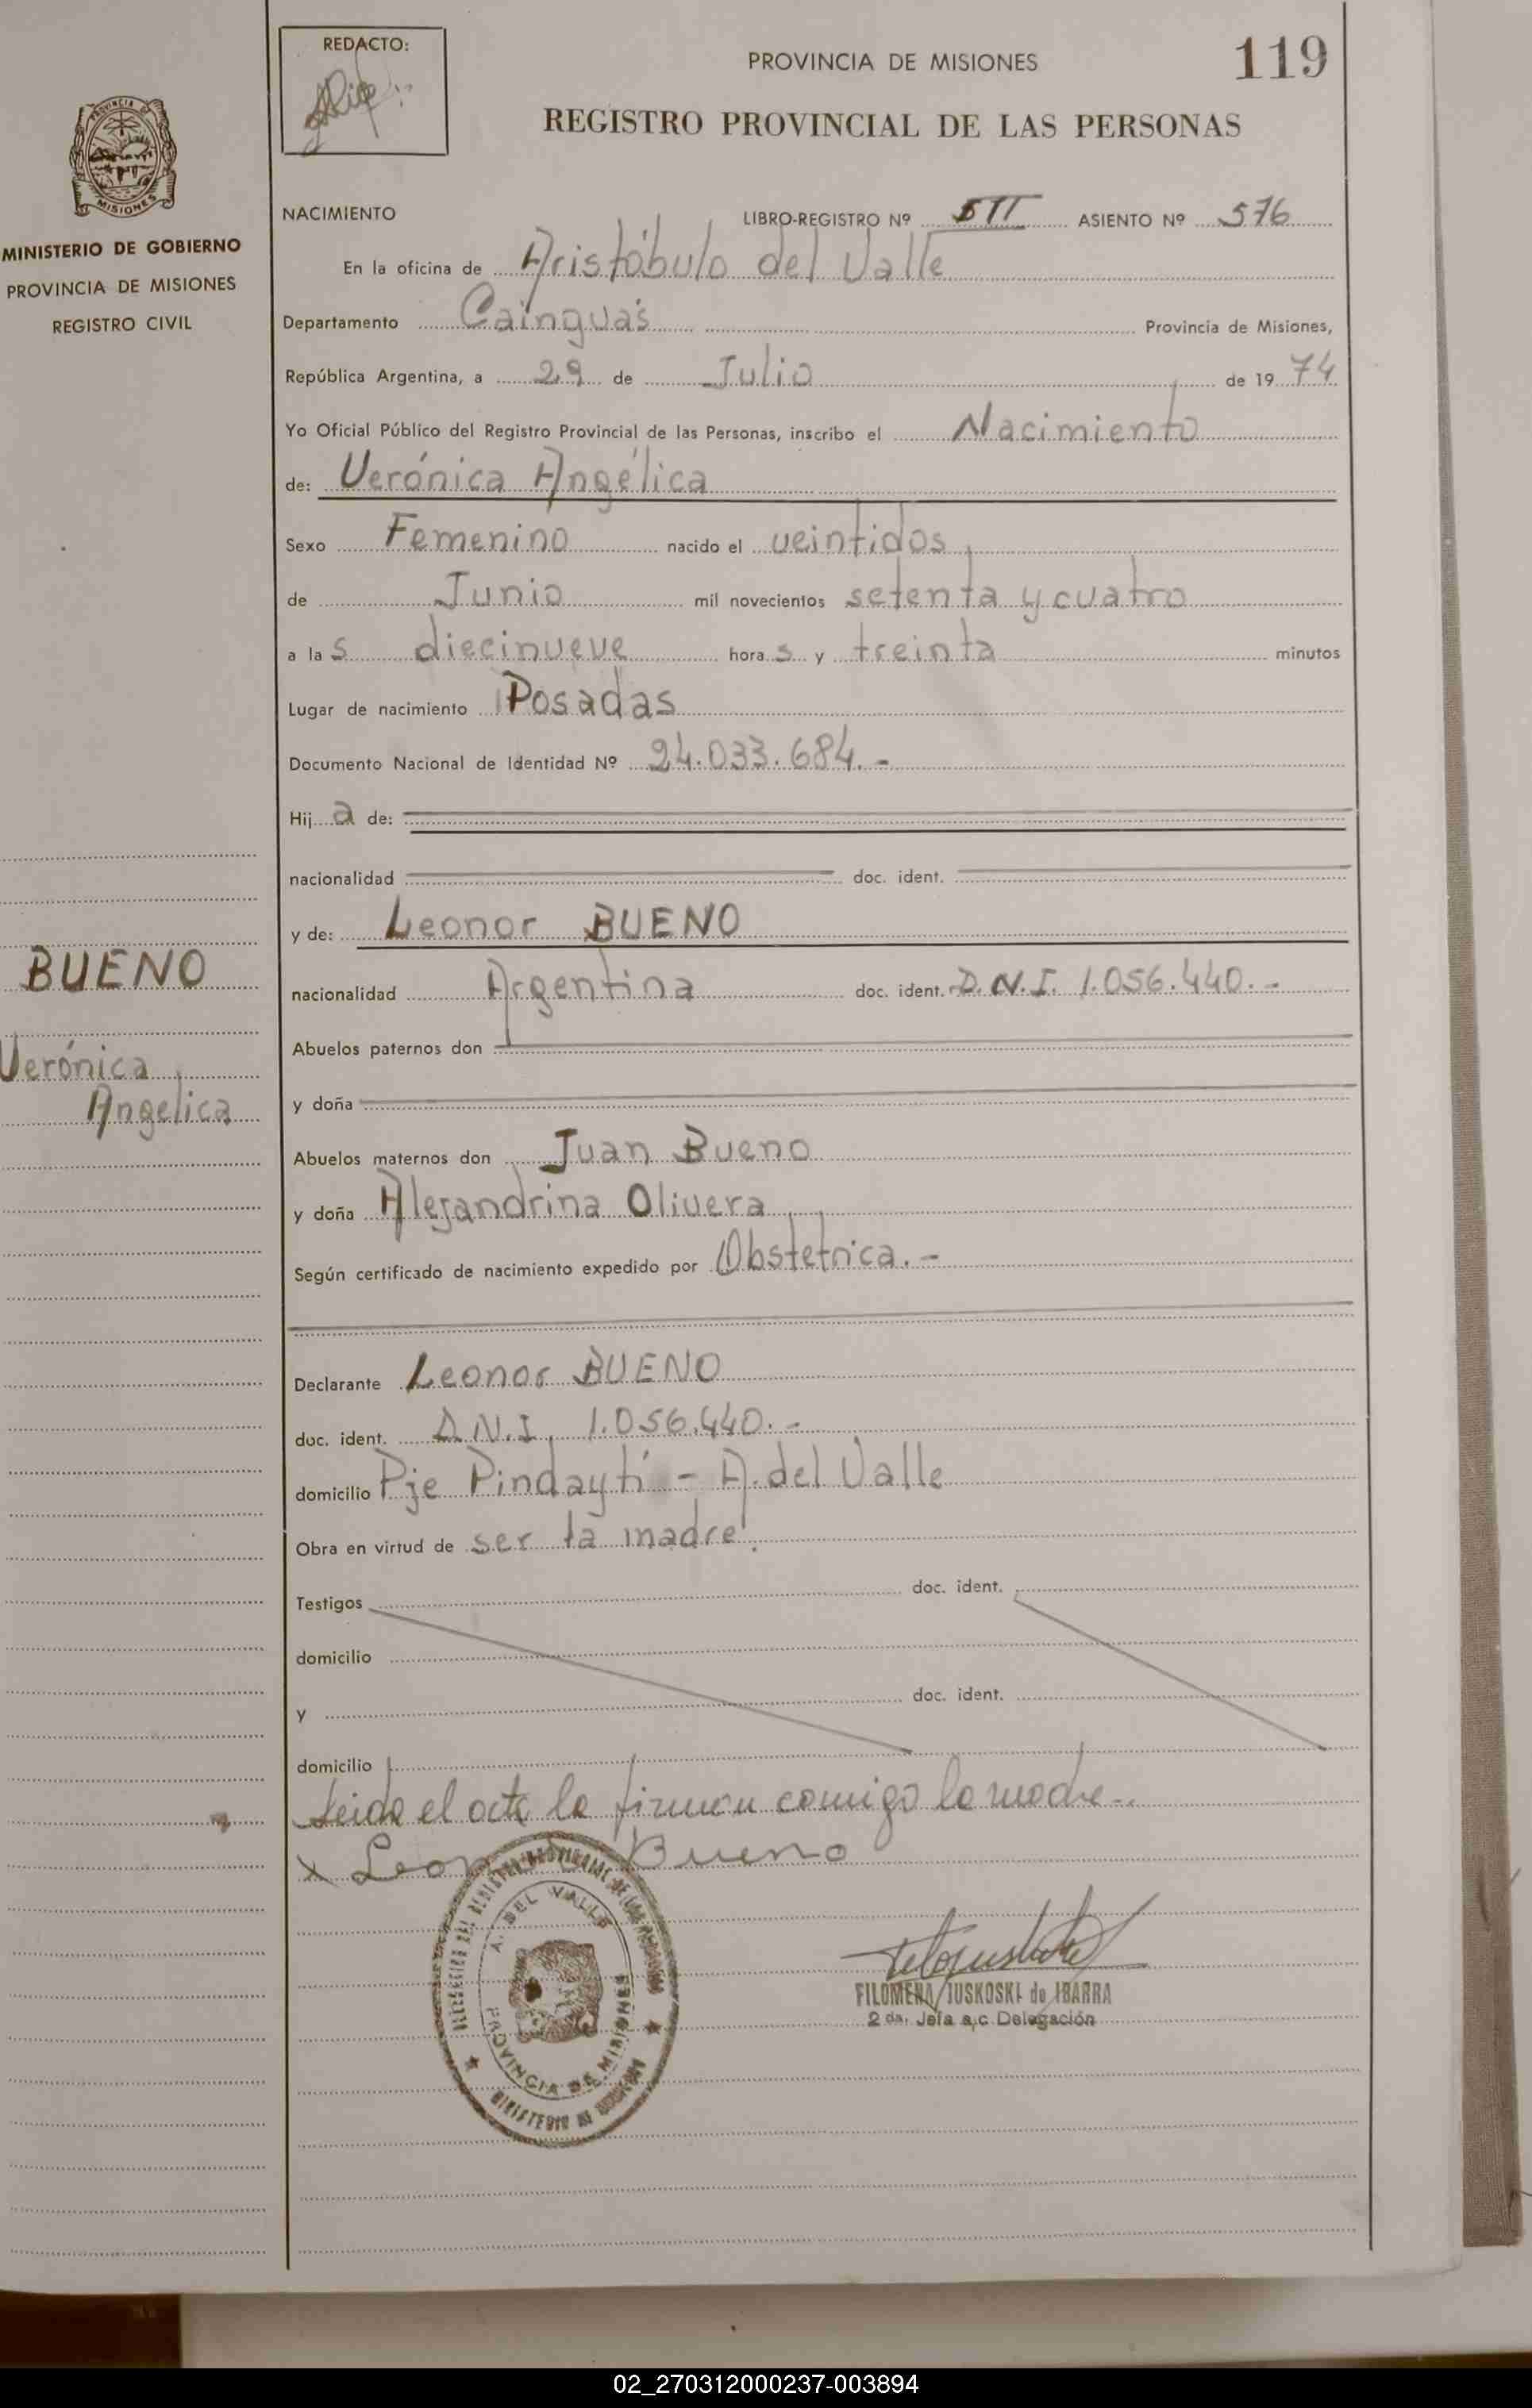 REDACTO:
PROVINCIA DE MISIONES
119
REGISTRO PROVINCIAL DE LAS PERSONAS
PROVINCIA
MISIONES
MINISTERIO DE GOBIERNO
PROVINCIA DE MISIONES
REGISTRO CIVIL
NACIMIENTO LIBRO-REGISTRO Nº ASIENTO Nº 576
En la oficina de Aristóbulo del Valle
Departamento Cainguás Provincia de Misiones,
República Argentina, a 29 de Julio de 19 74
Yo Oficial Público del Registro Provincial de las Personas, inscribo el Nacimiento
de: Verónica Angélica
Sexo Femenino nacido el veintidos
de Junio mil novecientos setenta y cuatro
a las diecinueve horas y treinta minutos
Lugar de nacimiento Posadas
Documento Nacional de Identidad Nº 24.033.684.-
Hija de:
nacionalidad doc. ident.
y de: Leonor BUENO
BUENO
nacionalidad Argentina doc. ident. D.N.I. 1.056.440.-
Abuelos paternos don
Verónica
Angelica
y doña
Abuelos maternos don Juan Bueno
y doña Alejandrina Olivera
Según certificado de nacimiento expedido por Obstetrica.-
Declarante Leonor BUENO
doc. ident. D.N.I. 1.056.440.-
domicilio Pje Pindaytí - A. del Valle
Obra en virtud de ser la madre.
Testigos doc. ident.
domicilio
y doc. ident.
domicilio
Leida el acta la firman comigo la madre-.
x Leon Bueno
A. DEL VALLE
PROVINCIA DE MISIONES
MINISTERIO DE
FILOMENA IUSKOSKI de IBARRA
2 da. Jefa a,c Delegación
02_270312000237-003894